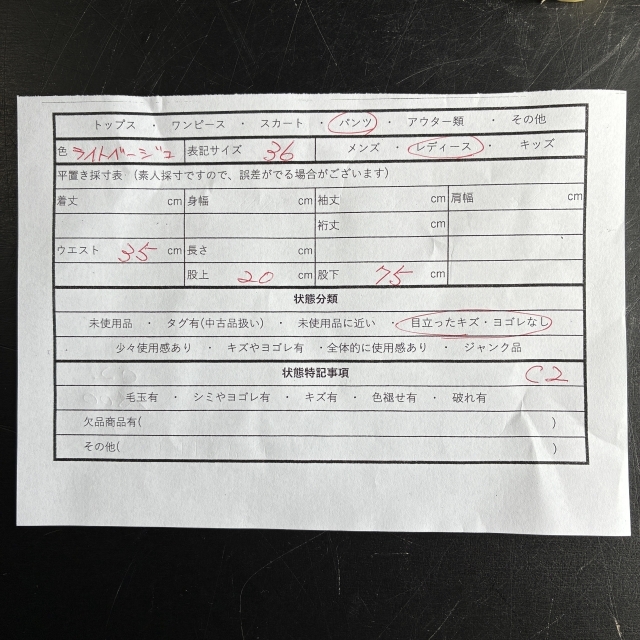 トップス ・ ワンピース ・ スカート ・ パンツ ・ アウター類 ・ その他
色 ライトベージュ 表記サイズ 36 メンズ ・ レディース ・ キッズ
平置き採寸表 (素人採寸ですので、誤差がでる場合がございます)
着丈 cm 身幅 cm 袖丈 cm 肩幅 cm
裄丈 cm
ウエスト 35 cm 長さ cm
股上 20 cm 股下 75 cm
状態分類
未使用品 ・ タグ有(中古品扱い) ・ 未使用品に近い ・ 目立ったキズ・ヨゴレなし
少々使用感あり ・ キズやヨゴレ有 ・全体的に使用感あり ・ ジャンク品
状態特記事項 C2
毛玉有 ・ シミやヨゴレ有 ・ キズ有 ・ 色褪せ有 ・ 破れ有
欠品商品有( )
その他( )